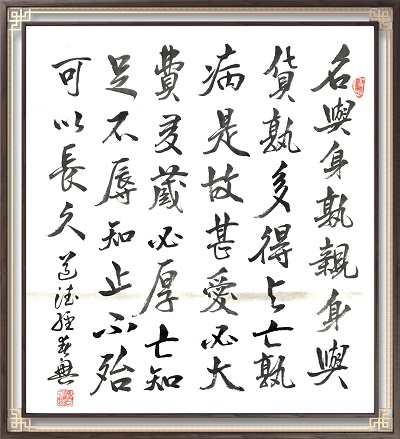 名與身孰親身與
貨孰多得与亡孰
病是故甚愛必大
費多藏必厚亡知
足不辱知止不殆
可以長久 道德經